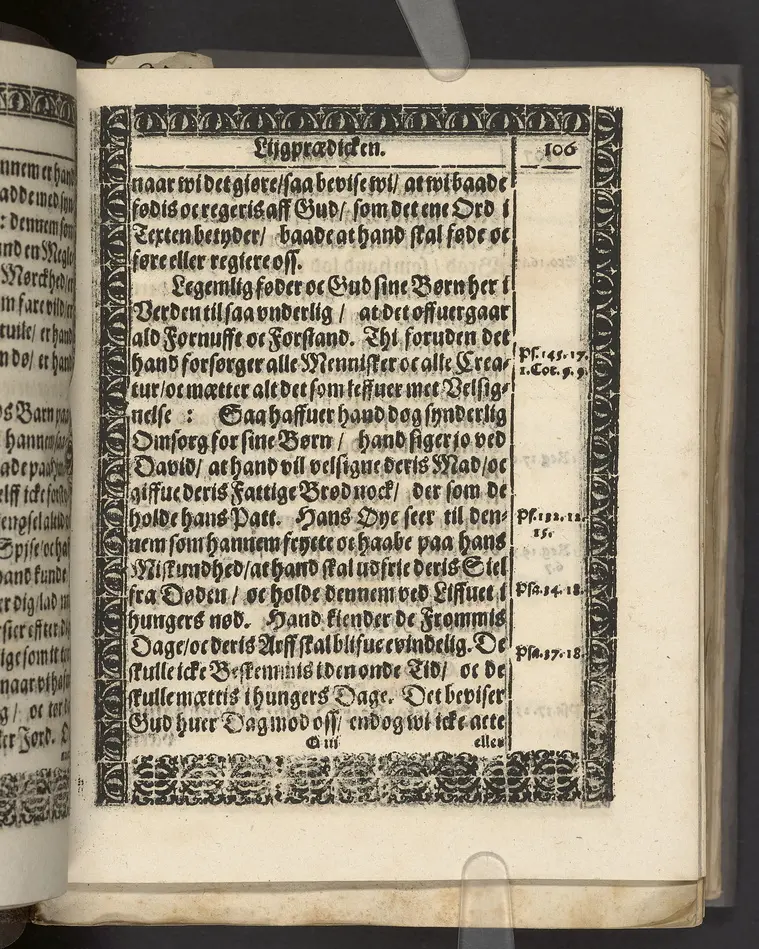 Lijgprædicken.
106
naar wi det giøre/saa bevise wi/ at wi baade
fødis oc regeris aff Gud/ som det ene Ord i
Texten betyder/ baade at hand skal føde oc
føre eller regiere oss.
Legemlig føder oc Gud sine Børn her i
Verden til saa vnderlig / at det offuergaar
ald Fornufft oc Forstand. Thi foruden det
hand forsørger alle Mennisker oc alle Crea-
tur/oc mætter alt det som leffuer met Velsig-
nelse : Saa haffuer hand dog synderlig
Omsorg for sine Børn / hand siger jo ved
David/ at hand vil velsigne deris Mad/oc
giffue deris Fattige Brød nock/ der som de
holde hans Patt. Hans Øye seer til den-
nem som hannem frycte oc haabe paa hans
Miskundhed/at hand skal udfrie deris Siel
fra Døden / oc holde dennem ved Liffuet i
hungers nød. Hand kiender de Frommis
Dage/oc deris Arff skal blifue evindelig. De
skulle icke Beskemmis i den onde Tid/ oc de
skulle mættis i hungers Dage. Det beviser
Gud huer Dag mod oss/ endog wi icke acte
O iii
eller
Ps. 145. 17.
1. Cor. 9. 9.
Ps. 132. 12.
15.
Psa. 34. 18.
Psa. 37. 18.